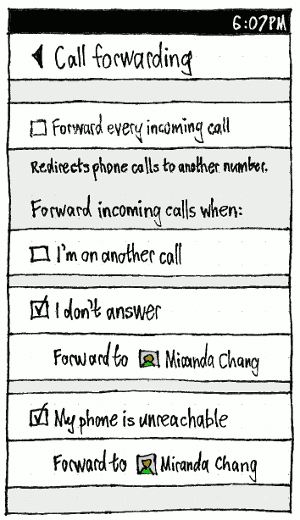 6:07PM
Call forwarding
Forward every incoming call
Redirects phone calls to another number.
Forward incoming calls when:
I'm on another call
I don't answer
Forward to Miranda Chang
My phone is unreachable
Forward to Miranda Chang